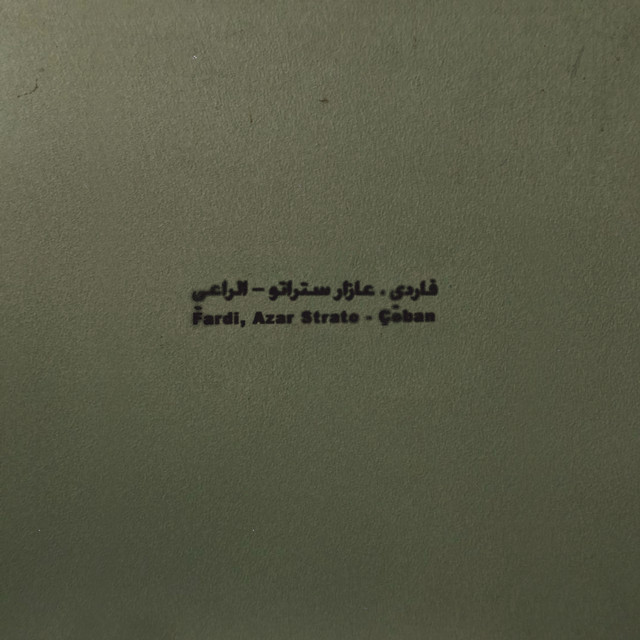 فاردي، عازار ستراتو – الراعي
Fardi, Azar Strato - Çoban